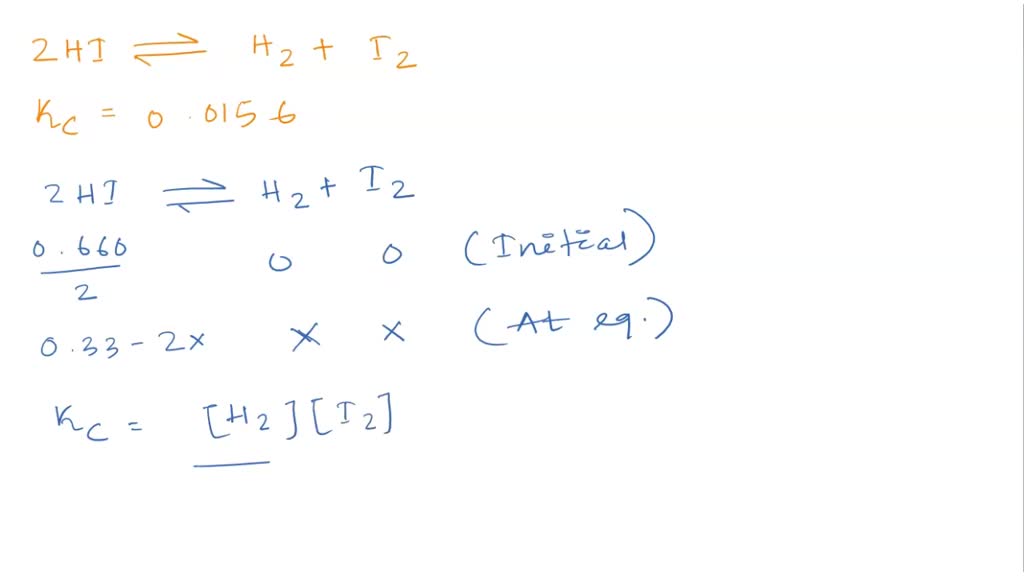 2HI ⇌ H2 + I2
Kc = 0.0156
2HI ⇌ H2 + I2
0.660/2 0 0 (Initial)
0.33 - 2x x x (At eq.)
Kc = [H2][I2]